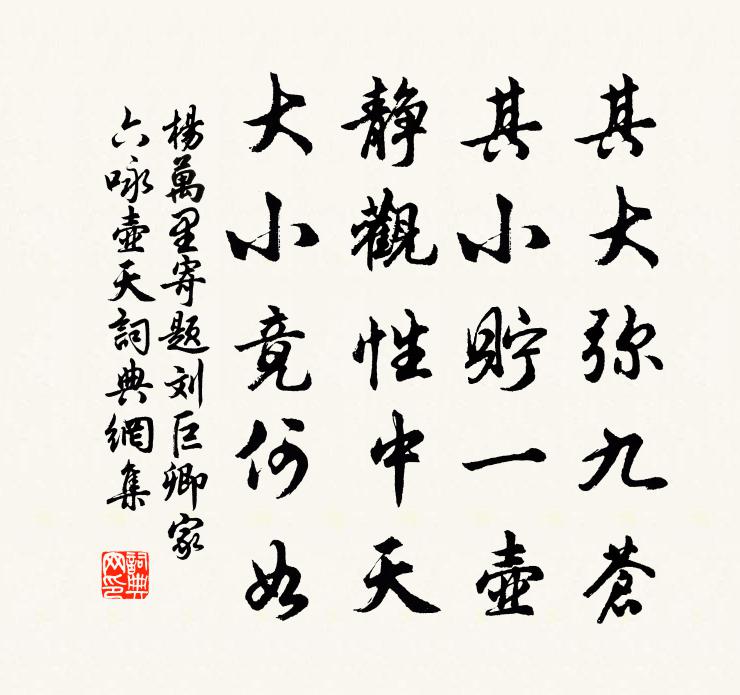 其大弥九蒼
其小貯一壺
靜觀性中天
大小竟何如
楊萬里寄題刘巨卿家
六咏壺天詞典網集
詞典
网印